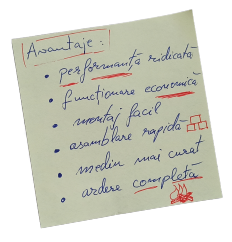 Avantaje:
• performanță ridicată
• funcționare economică
• montaj facil
• asamblare rapidă
• mediu mai curat
• ardere completă